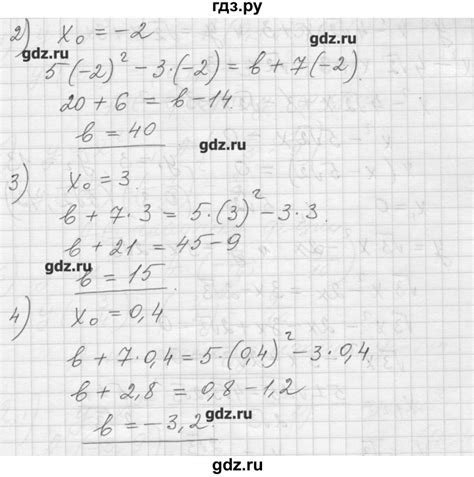 гдз.ру
2) x₀ = -2
gdz.ru
5·(-2)² - 3·(-2) = b + 7(-2)
gdz.ru
20 + 6 = b - 14.
b = 40
gdz.ru
3) x₀ = 3.
b + 7·3 = 5·(3)² - 3·3.
b + 21 = 45 - 9
gdz.ru
b = 15
gdz.ru
4) x₀ = 0,4
b + 7·0,4 = 5·(0,4)² - 3·0,4
gdz.ru
b + 2,8 = 0,8 - 1,2
gdz.ru
b = -3,2
gdz.ru